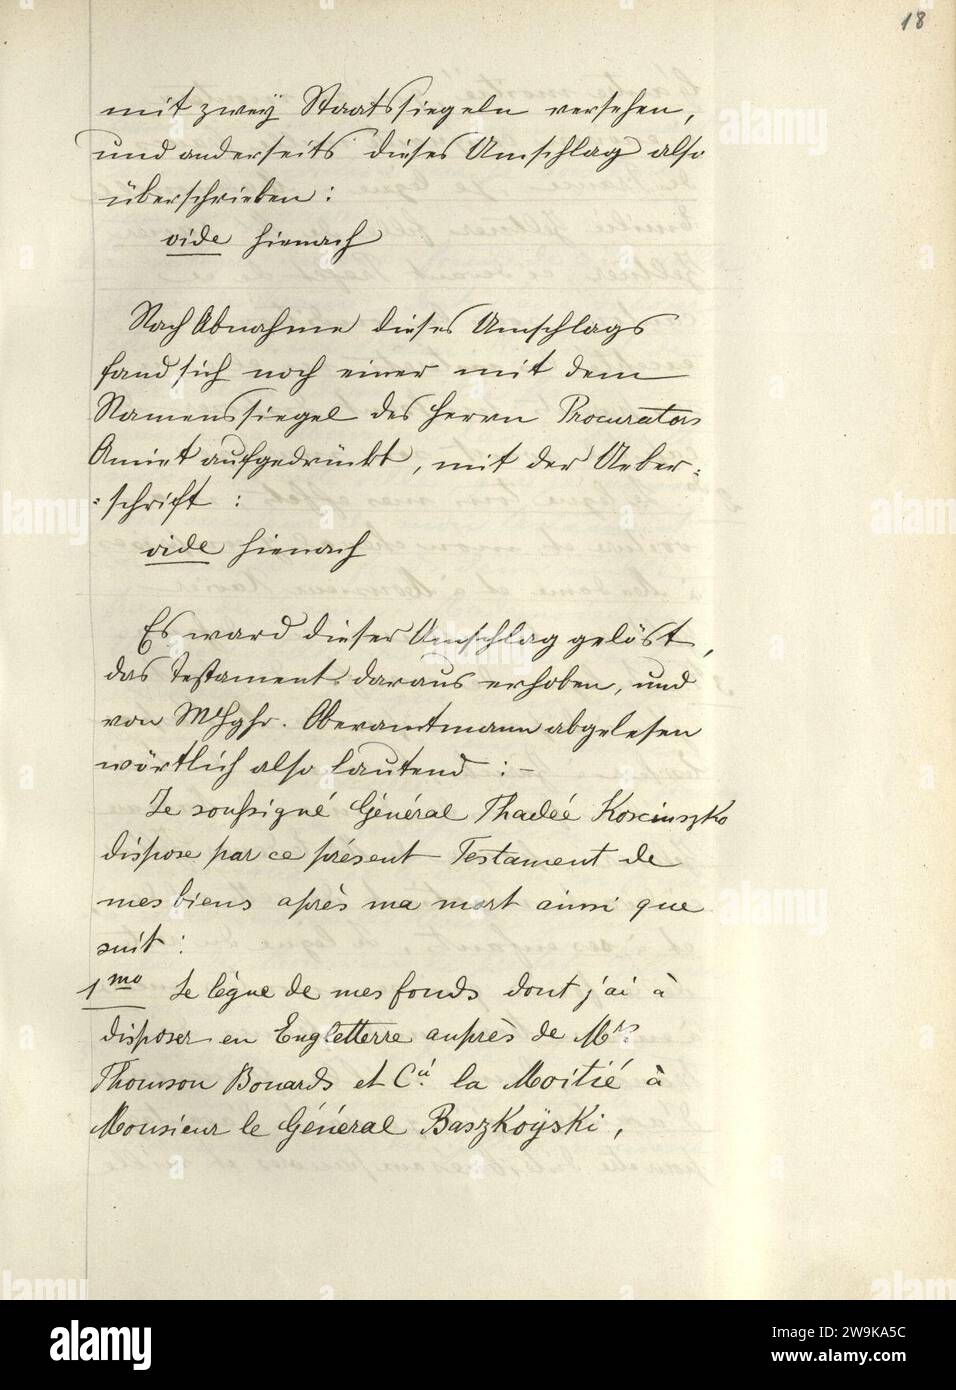 18
mit zweÿ Staatssiegeln versehen,
und anderseits dieses Umschlag also
überschrieben :
vide hienach
Nach Abnahme dieses Umschlags
fand sich noch einer mit dem
Namenssiegel des Herrn Procurators
Amiet aufgedrückt, mit der Ueber-
-schrift :
vide hienach
Es ward dieser Umschlag gelöst,
das Testament daraus erhoben, und
von MHghr. Oberamtmann abgelesen
wörtlich also lautend : –
Je soussigné Général Thadée Kosciuszko
dispose par ce présent Testament de
mes biens après ma mort ainsi que
suit :
1mo Je lègue de mes fonds dont j'ai à
disposer en Engletterre auprès de Mrs.
Thomson Bonards et Cie. la Moitié à
Monsieur le Général Baszkoÿski,
alamy
Image ID: 2W9KA5C
www.alamy.com